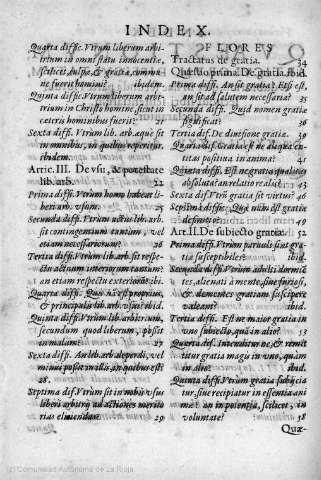 INDEX.
Quarta diffic. Vtrum liberum arbi-
trium in omni statu innocentiæ,
scilicet culpæ, & gratiæ, commu-
ne fuerit homini? ibidem.
Quinta diffic. Vtrum liberum arbi-
trium in Christo homine, sicut in
cæteris hominibus fuerit? 21
Sexta diffi. Vtrùm lib. arb. æquè sit
in omnibus, in quibus reperitur.
ibidem.
Artic. III. De vsu, & potestate
lib. arb. 22
Prima diffi. Vtrum homo habeat li-
berum vsum?
Secunda diffi. Vtrum actus lib. arb.
sit contingentium tantum, vel
etiam necessariorum? 26
Tertia diffi. Vtrum lib. arb. sit respe-
ctu actuum internorum tantum?
an etiam respectu exteriorum? ibi.
Quarta diffi. Quis actus est proprius,
& principalis lib. arb.
Quinta diffi. Vtrum lib. arbitrium,
secundum quod liberum, possit
in malum? 27
Sexta diffi. An lib. arb. vel
minui possit in quibus est?
28.
Septima dif. Vtrum sit in nobis vsus
liberi arbitrij ad actiones merito
rias eliciendas. 29
FLORES
Tractatus de gratia. 34
Quæstio prima. De gratia. ibid.
Prima diffi. An sit gratia? Etsi est,
an sit ad salutem necessaria? 35
Secunda diffi. Quid nomen gratiæ
significet? 36
Tertia dif. De diuisione gratiæ. 39
Quarta dif. Gratia est ne aliqua en-
titas positiua in anima? 41
Quinta diffi. Est ne gratia qualitas
absoluta? an relatio realis? 43
Sexta dif. Vtrū gratia sit virtus? 47
Septima diffic. Quæ nam est gratiæ
definitio? 49
Art. II. De subiecto gratiæ. 52
Prima diffi. Vtrum paruuli sint gra-
tiæ susceptibiles? ibid.
Secunda diffi. Vtrum adulti dormiẽ
tes, alienati à mente, siue furiosi,
& dementes gratiam suscipere
valeant? ibid.
Tertia diffic. Est ne maior gratia in
vno subiecto, quàm in alio? 53
Quarta dif. Intenditur ne, & remit
titur gratia magis in vno, quàm
in alio? ibid.
Quinta diffi. Vtrum gratia subijcia
tur, siue recipiatur in essentia ani
mæ? an in potentia, scilicet, in
voluntate? 58
Quæ-
(c) Comunidad Autónoma de La Rioja